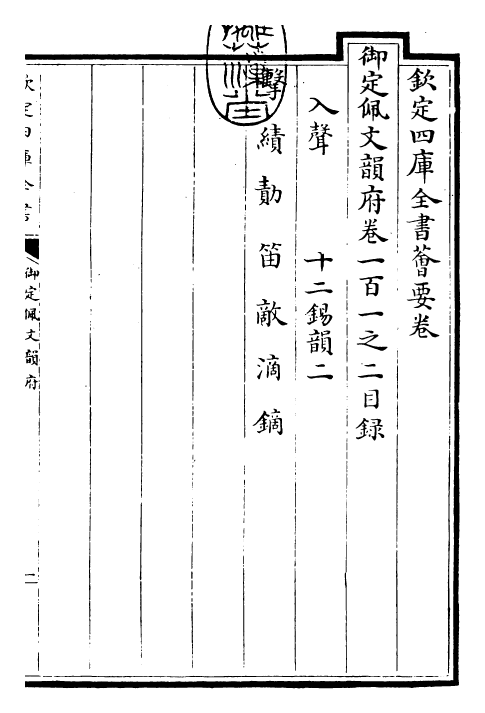 欽定四庫全書薈要卷
御定佩文韻府卷一百一之二目録
入聲　十二錫韻二
擊績勣笛敵滴鏑
欽定四庫全書
御定佩文韻府
一